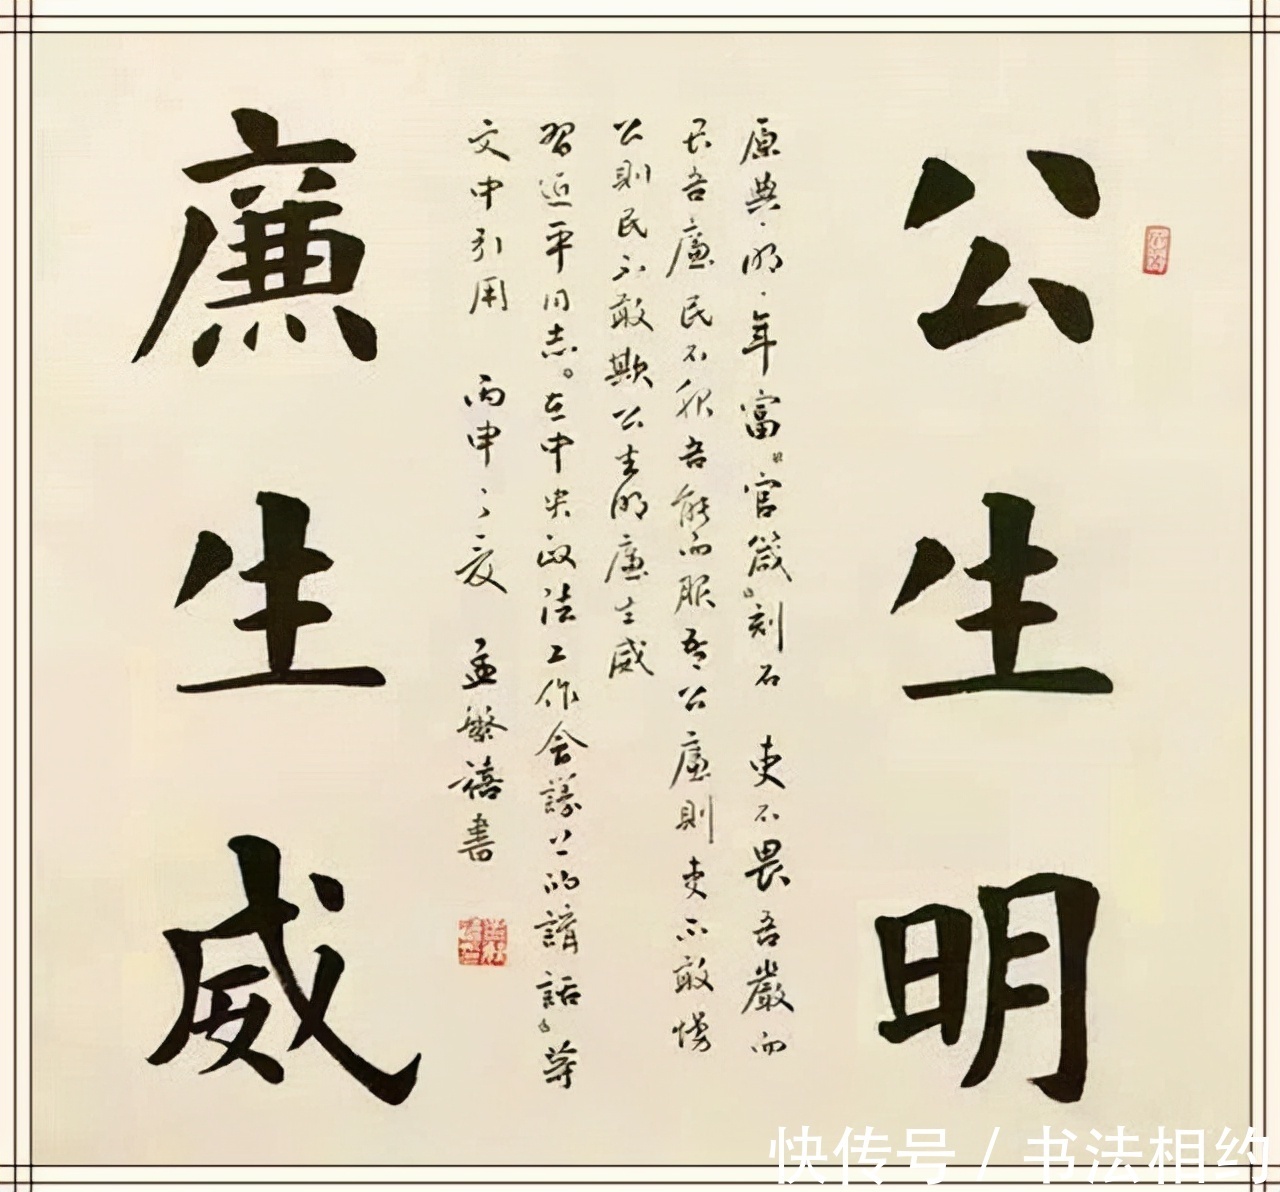 公生明
原典·明·年富《官箴》刻石 吏不畏吾嚴而
畏吾廉民不服吾能而服吾公廉則吏不敢慢
公則民不敢欺公生明廉生威
習近平同志《在中央政法工作会議上的講話》等
文中引用 丙申之夏 孟繁禧書
廉生威
快传号 / 书法相约